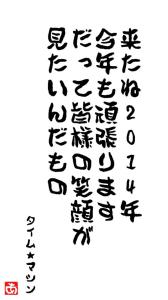 来たね2014年
今年も頑張ります
だって皆様の笑顔が
見たいんだもの
タイム★マシン
あ